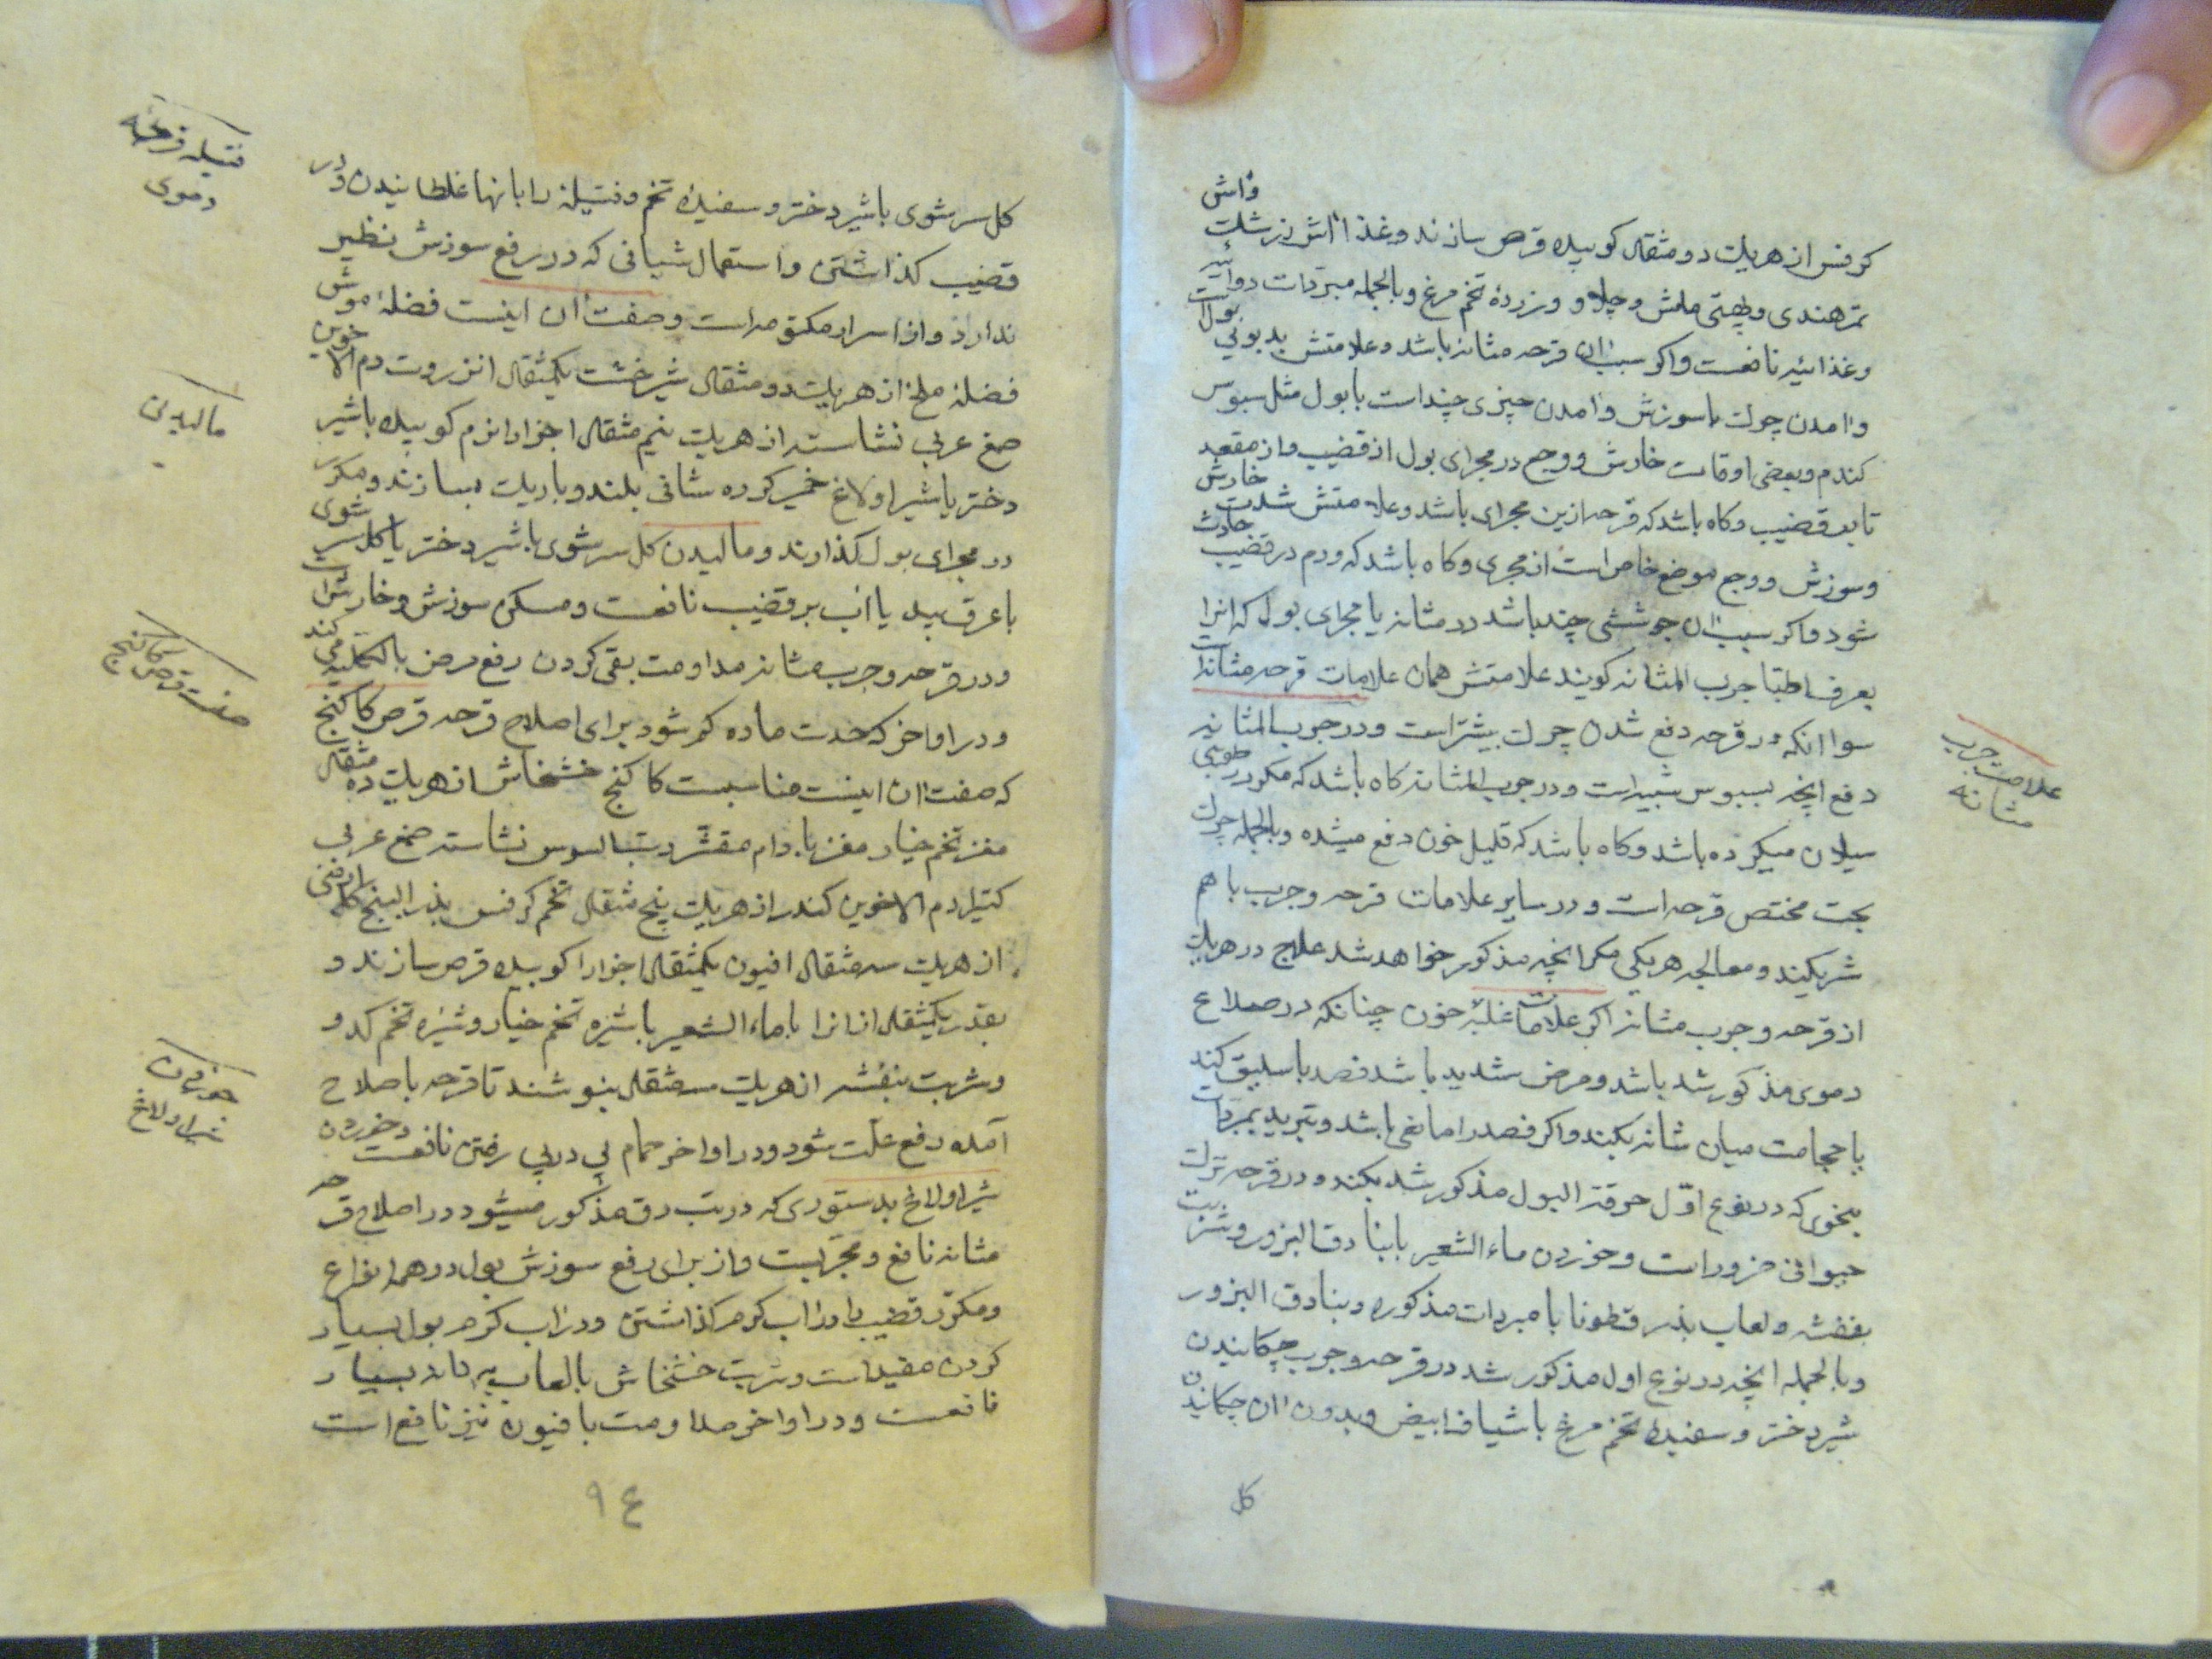 کرفس از هریک دو مثقال کوبیده قرص سازند و غذا اش زرشک واش
تمرهندی و چلاو و زردهٔ تخم مرغ و بالجمله مبردات دوائیه
وغذائیه نافعست واکر سبب ان قرحه مثانه باشد وعلامتش بدبوئی بول است
واامدن چرک با سوزش واامدن چیزی چند است با بول مثل سبوس
کندم وبعضی اوقات خارش ووجع در مجرای بول از قضیب واز مقعد
تا بقضیب وکاه باشد که قرحه ازین مجرای باشد وعلامتش شدت خارش
وسوزش ووجع موضع خاص است از مجری وکاه باشد که ورم در قضیب حادث
شود واکر سبب ان جوششی چند باشد در مثانه یا مجرای بول که انرا
بعرف اطبا جرب المثانه کویند علامتش همان علامات قرحه مثانه است
سوا انکه در قرحه دفع شدن چرک بیشتر است ودر جرب المثانه
دفع انچه بسبوس شبیه است ودر جرب المثانه کاه باشد که مکرر رطوبتی
سیلان میکرده باشد وکاه باشد که قلیل خون دفع میشده وبالجمله چرک
بحت مختص قرحه است ودر سایر علامات قرحه وجرب باهم
شریکیند ومعالجه هریکی مکرر انچه مذکور خواهد شد علاج در هریک
از قرحه وجرب مثانه اکر علامات غلبهٔ خون چنانکه در صداع
دموی مذکور شد باشد ومرض شدید باشد فصد باسلیق کند
یا حجامت میان شانه بکند واکر فصد را مانعی باشد وتبرید بمبردات
بنحوی که در نوع اول حرقة البول مذکور شد بکند ودر قرحه ترک
حیوانی ضرور است وخوردن ماء الشعیر با بنادق البزور وشربت
بنفشه ولعاب بذر قطونا با مبردات مذکوره وبنادق البزور
وبالجمله انچه در نوع اول مذکور شد در قرحه وجرب چکانیدن
شیر دختر وسفیدهٔ تخم مرغ با شیاف ابیض وبدون ان چکانیدن
کل
علامت جرب
مثانه
کل سرشوی با شیر دختر وسفیدهٔ تخم وفتیله را بانها غلطانیدن ودر
قضیب کذاشتن واستعمال شیافی که در رفع سوزش نظیر
ندارد واز اسرار مکتومه است وصفت ان اینست فضلهٔ موش
فضلهٔ ملخ از هریک دو مثقال شیرخشت یکمثقال انزروت دم الاخوین
صمغ عربی نشاسته از هریک نیم مثقال اجزا را نرم کوبیده با شیر
دختر یا شیر اولاغ خمیر کرده شافی بلند وباریک بسازند ومکرر
در مجرای بول کذارند ومالیدن کل سرشوی با شیر دختر یا کل سرشوی
با عرق بید یا اب بر قضیب نافعست ومسکن سوزش وخارش است
ودر قرحه وجرب مثانه مداومت بقی کردن رفع مرض بالکلیه می کند
ودر اواخر که حدت ماده کم شود برای اصلاح قرحه قرص کاکنج
که صفت ان اینست مناسبست کاکنج خشخاش از هریک ده مثقال
مغز تخم خیار مغز بادام مقشر رب السوس نشاسته صمغ عربی
کتیرا دم الاخوین کندر از هریک پنج مثقال تخم کرفس بذر البنج کل ارمنی
از هریک سه مثقال افیون یکمثقال اجزا را کوبیده قرص سازند و
بقدر یکمثقال از انرا با ماء الشعیر با شیره تخم خیار وشیره تخم کدو و
وشربت بنفشه از هریک سه مثقال بنوشند تا قرحه باصلاح
آمده رفع علت شود ودر اواخر حمام پی در پی رفتن نافعست وخوردن
شیر اولاغ بدستوری که در تب دق مذکور میشود در اصلاح قرحه
مثانه نافع ومجربست واز برای رفع سوزش بول در همه انواع
ومکرر قضیب را در اب کرم کذاشتن ودر اب کرم بول بسیار
کردن مفید است وشربت خشخاش با لعاب بهدانه بسیار
نافعست ودر اواخر مداومت بافیون نیز نافع است
فتیله قرحه
دموی
مالیدن
صفت قرص کاکنج
خوردن
شیر اولاغ
۹٤